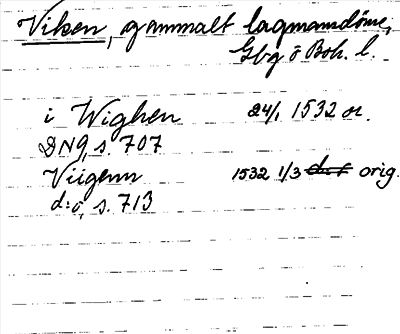 Viken, gammalt lagmansdöme,
Gbg o Boh. l.
i Wighen 24/1 1532 or.
DN9, s. 707
Viigenn 1532 1/3 orig.
d:o, s. 713